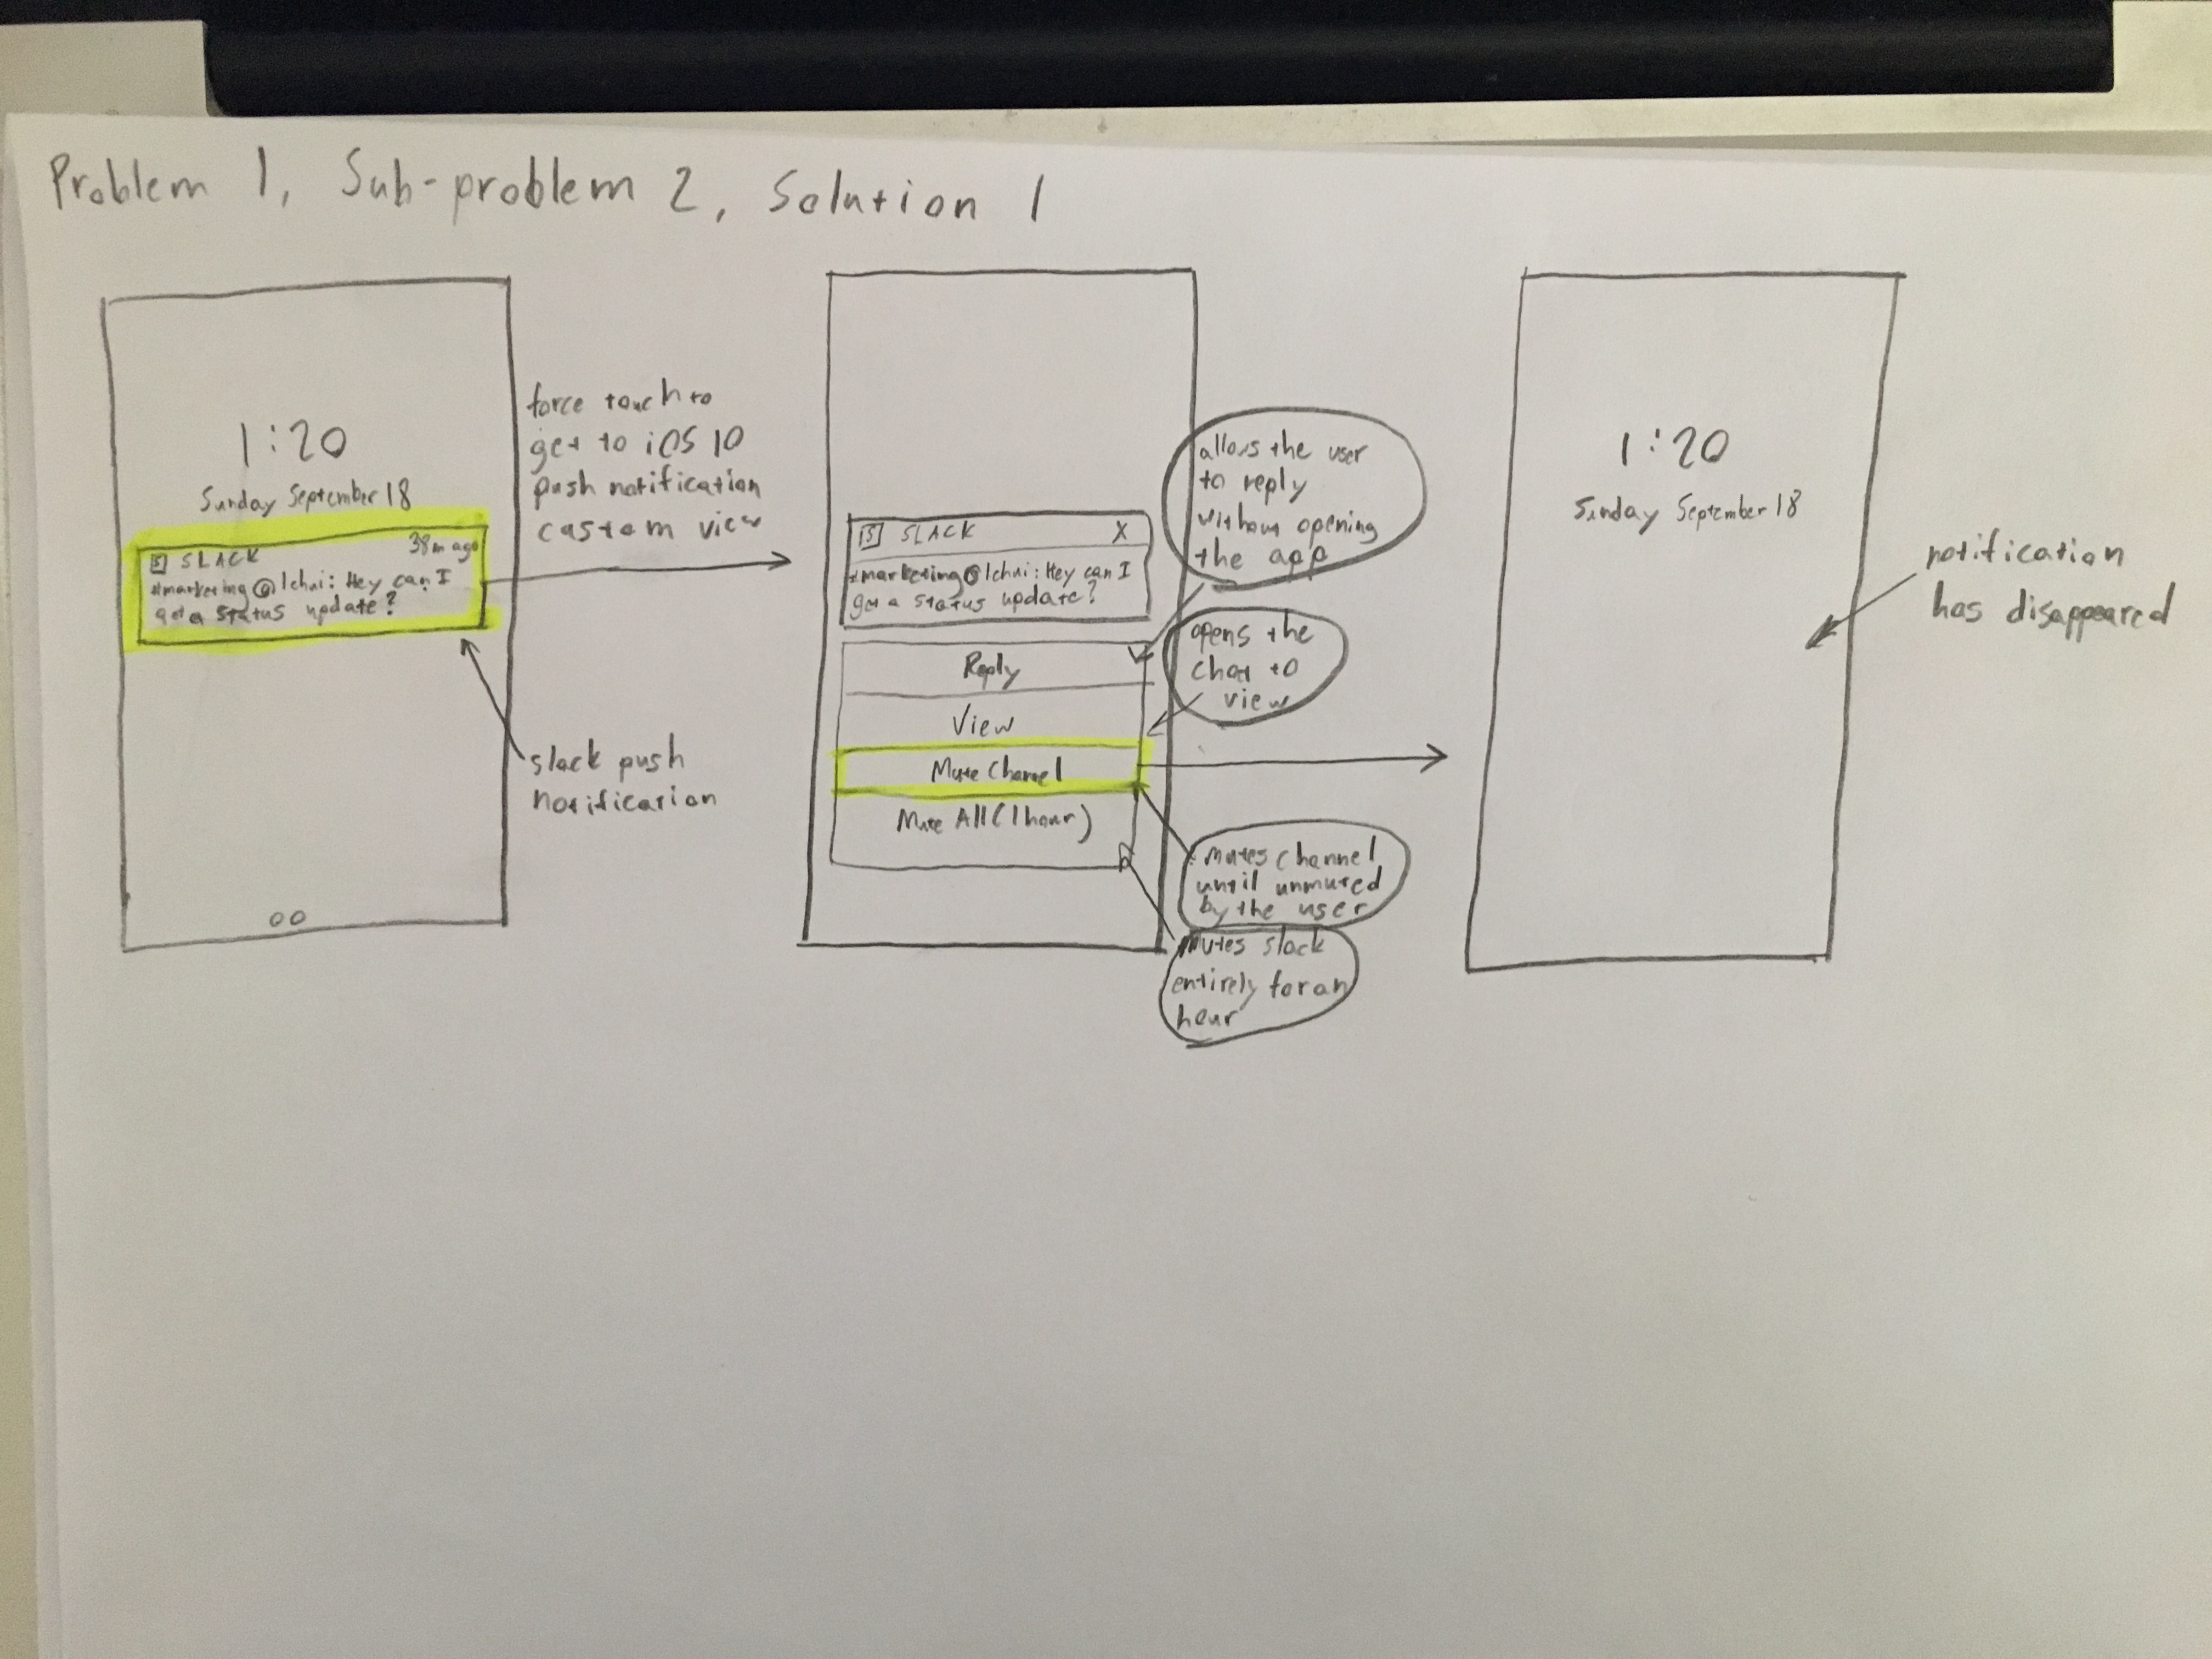 Problem 1, Sub-problem 2, Solution 1
1:20
Sunday September 18
S SLACK 38m ago
#marketing @lchui: Hey can I
get a status update?
force touch to
get to iOS 10
push notification
custom view
slack push
notification
S SLACK X
#marketing @lchui: Hey can I
get a status update?
Reply
View
Mute Channel
Mute All (1 hour)
allows the user
to reply
without opening
the app
opens the
chat to
view
mutes channel
until unmuted
by the user
Mutes slack
entirely for an
hour
1:20
Sunday September 18
notification
has disappeared